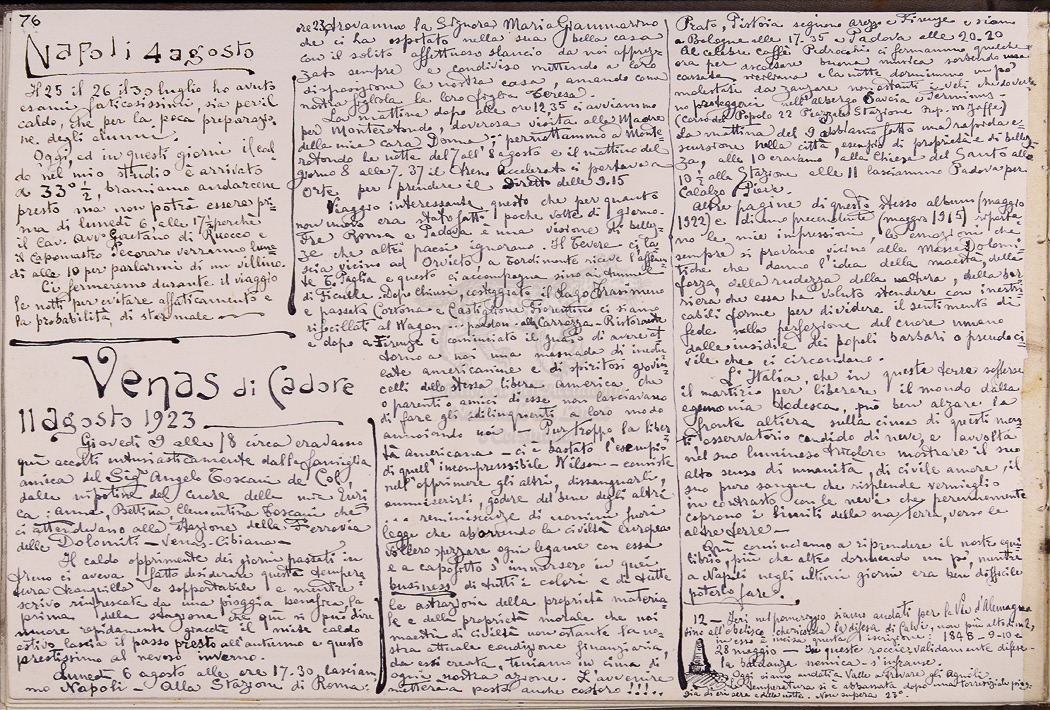 76
Napoli 4 agosto
Il 25 il 26 il 30 luglio ho avuto
esami faticosissimi, sia per il
caldo, che per la poca preparazio,
ne degli alunni.
Oggi, ed in questi giorni il cal,
do nel mio studio è arrivato
a 33° ½, bramiamo andarcene
presto ma non potrà essere pri=
ma di lunedì 6, alle 17½ perchè
il Cav. Avv. Gaetano di Ruocco e
il Capomastro Pecoraro verranno lune
dì alle 10 per parlarmi di un villino.
Ci fermeremo durante il viaggio
le notti per evitare affaticamento e
la probabilità di star male
Venas di Cadore
11 agosto 1923
Giovedì 9 alle 18 circa eravamo
quì accolti entusiasticamente dalla famiglia
amica del Sig. Angelo Toscani de Col,
dalle nipotine del cuore della mia Enri
ca: Anna, Bettina, Clementina Toscani che
ci attendevano alla stazione della Ferrovia
delle Dolomiti - Venas-Cibiana -
Il caldo opprimente dei giorni passati in
treno ci aveva fatto desiderare questa tempera
tura tranquilla e sopportabile e mentre
scrivo rinfrescata da una pioggia benefica, la
prima della stagione che quì si può dire
muore rapidamente giacchè il mite caldo
estivo lascia il passo presto all'autunno e questo
prestissimo al nevoso inverno.
Lunedì 6 agosto alle ore 17.30 lasciam
mo Napoli - Alla Stazione di Roma.
ore 23 trovammo la Signora Maria Giammarino
che ci ha ospitato nella sua bella casa
con il solito affettuoso slancio da noi apprez
zato sempre e condiviso mettendo a loro
disposizione la nostra casa, amando come
nostra figlola la loro figlia Teresa.
La mattina dopo alle ore 12.35 ci avviammo
per Monterotondo, doverosa visita alle Madre
della mia cara Donna; pernottammo a Monte
rotondo la notte del 7 all'8 agosto e il mattino del
giorno 8 alle 7.37 il treno Accelerato ci portava a
Orte per prendere il Diretto delle 9.15
Viaggio interessante questo che per quanto
non nuovo era stato fatto poche volte di giorno.
Fra Roma e Padova è una visione di bellez
ze che altri paesi ignorano. Il Tevere ci la
scia vicino ad Orvieto a Tordimonte riceve l'affluen
te T. Paglia e questo ci accompagna sino ai tunnel
di Ficulle. Dopo Chiusi costeggiato il Lago Trasimeno
e passata Cortona e Castiglion Fiorentino ci siamo
rifocillati al Wagon - pardon - alla Carrozza-Ristorante
e dopo a Firenze è cominciato il guaio di avere at
torno a noi una masnada di inedu
cate americanine e di spiritosi giovin
celli della stessa libera America, che
o parenti o amici di esse lasciavano
di fare gli idilinquienti a loro modo
annoiando noi - Purtroppo la liber
tà americana - ci è bastato l'esempio
di quell'incomprensibile Wilson - consiste
nell'opprimere gli altri, dissanguarli,
ammiserirli, godere del bene degli altri
... reminiscenze di uomini fuori
legge che aborrendo la civiltà europea
vollero spezzare ogni legame con essa
e a capofitto s'immersero in quei
business di tutti i colori e di tutte
le astrazioni della proprietà materia=
le e della proprietà morale che noi
maestri di civiltà nonostante la no=
stra attuale condizione finanziaria,
da essi creata, teniamo in cima di
ogni nostra azione. L'avvenire
metterà a posto anche costoro !!!..
Prato, Pistoia seguono Arezzo e Firenze e siamo
a Bologna alle 17.35 e Padova alle 20.20
Al celebre caffè Pedrocchi ci fermammo qualche
ora per ascoltare buona musica sorbendo una
cassata siciliana e la notte dormimmo un po'
molestati da zanzare nonostante i veli che doveva
no proteggerci nell'albergo Favcia e Terminus -
(Corso del Popolo 22 Piazzale Stazione Prop. M. Jaffe)
La mattina del 9 abbiamo fatto una rapida e=
scursione nella città, esempio di proprietà e di bellez
za, alle 10 eravamo alla Chiesa del Santo alle
10 ½ alla Stazione alle 11 lasciammo Padova per
Calalzo Pieve.
Altre pagine di questo stesso album (maggio
1922) e di uno precendente (maggio 1915) riporta
no le mie impressioni, le emozioni che
sempre si provano vicino alle Masse Dolomi=
tiche che danno l'idea della maestà, della
forza, della rudezza della natura, della bar
riera che essa ha voluto stendere con inestri
cabili forme per dividere il sentimento di
fede nella perfezione del cuore umano
dalle insidie dei popoli barbari o pseudo ci
vile che ci circondano.
L'Italia, che in queste terre sofferse
il martirio per liberare il mondo dalla
egemonia tedesca, può ben alzare la
fronte altiera sulla cima di questi mon
ti osservatorio candido di neve, e avvolta
nel suo luminoso tricolore mostrare il suo
alto senso di umanità, di civile amore, il
suo puro sangue che risplende vermiglio
in contrasto con le nevi che perennemente
coprono i limiti della sua terra, verso le
altre terre -
Quì cominciamo a riprendere il nostro equi
librio, più che altro dormendo un pò, mentre
a Napoli negli ultimi giorni era ben difficile
poterlo fare.
12 - Ieri nel pomeriggio siamo andati per la Via d'Alemagna
sino all'obelisco che ricorda la difesa di Calvi, non più alto di m 2,
in esso è incisa questa iscrizione: 1848 - 9-10 e
28 maggio - In queste roccie validamente difese -
la baldanza nemica - s'infranse.
Oggi siamo andati a Valle a trovare gli Agnoli.
La temperatura si è abbassata dopo una torrenziale piog=
gia di ieri sera e della notte. Non supera 23°.